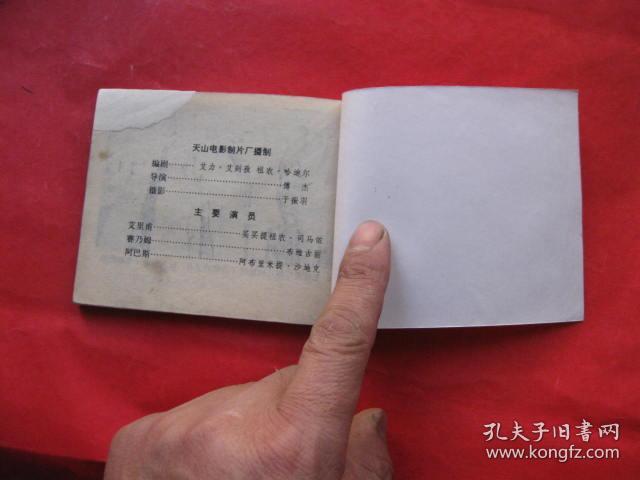 天山电影制片厂摄制
编剧········艾力·艾则孜 祖农·哈迪尔
导演················傅 杰
摄影················于振羽
主要演员
艾里甫··············买买提祖农·司马依
赛乃姆····················布维古丽
阿巴斯··············阿布里米提·沙地克
孔夫子旧书网
www.kongfz.com